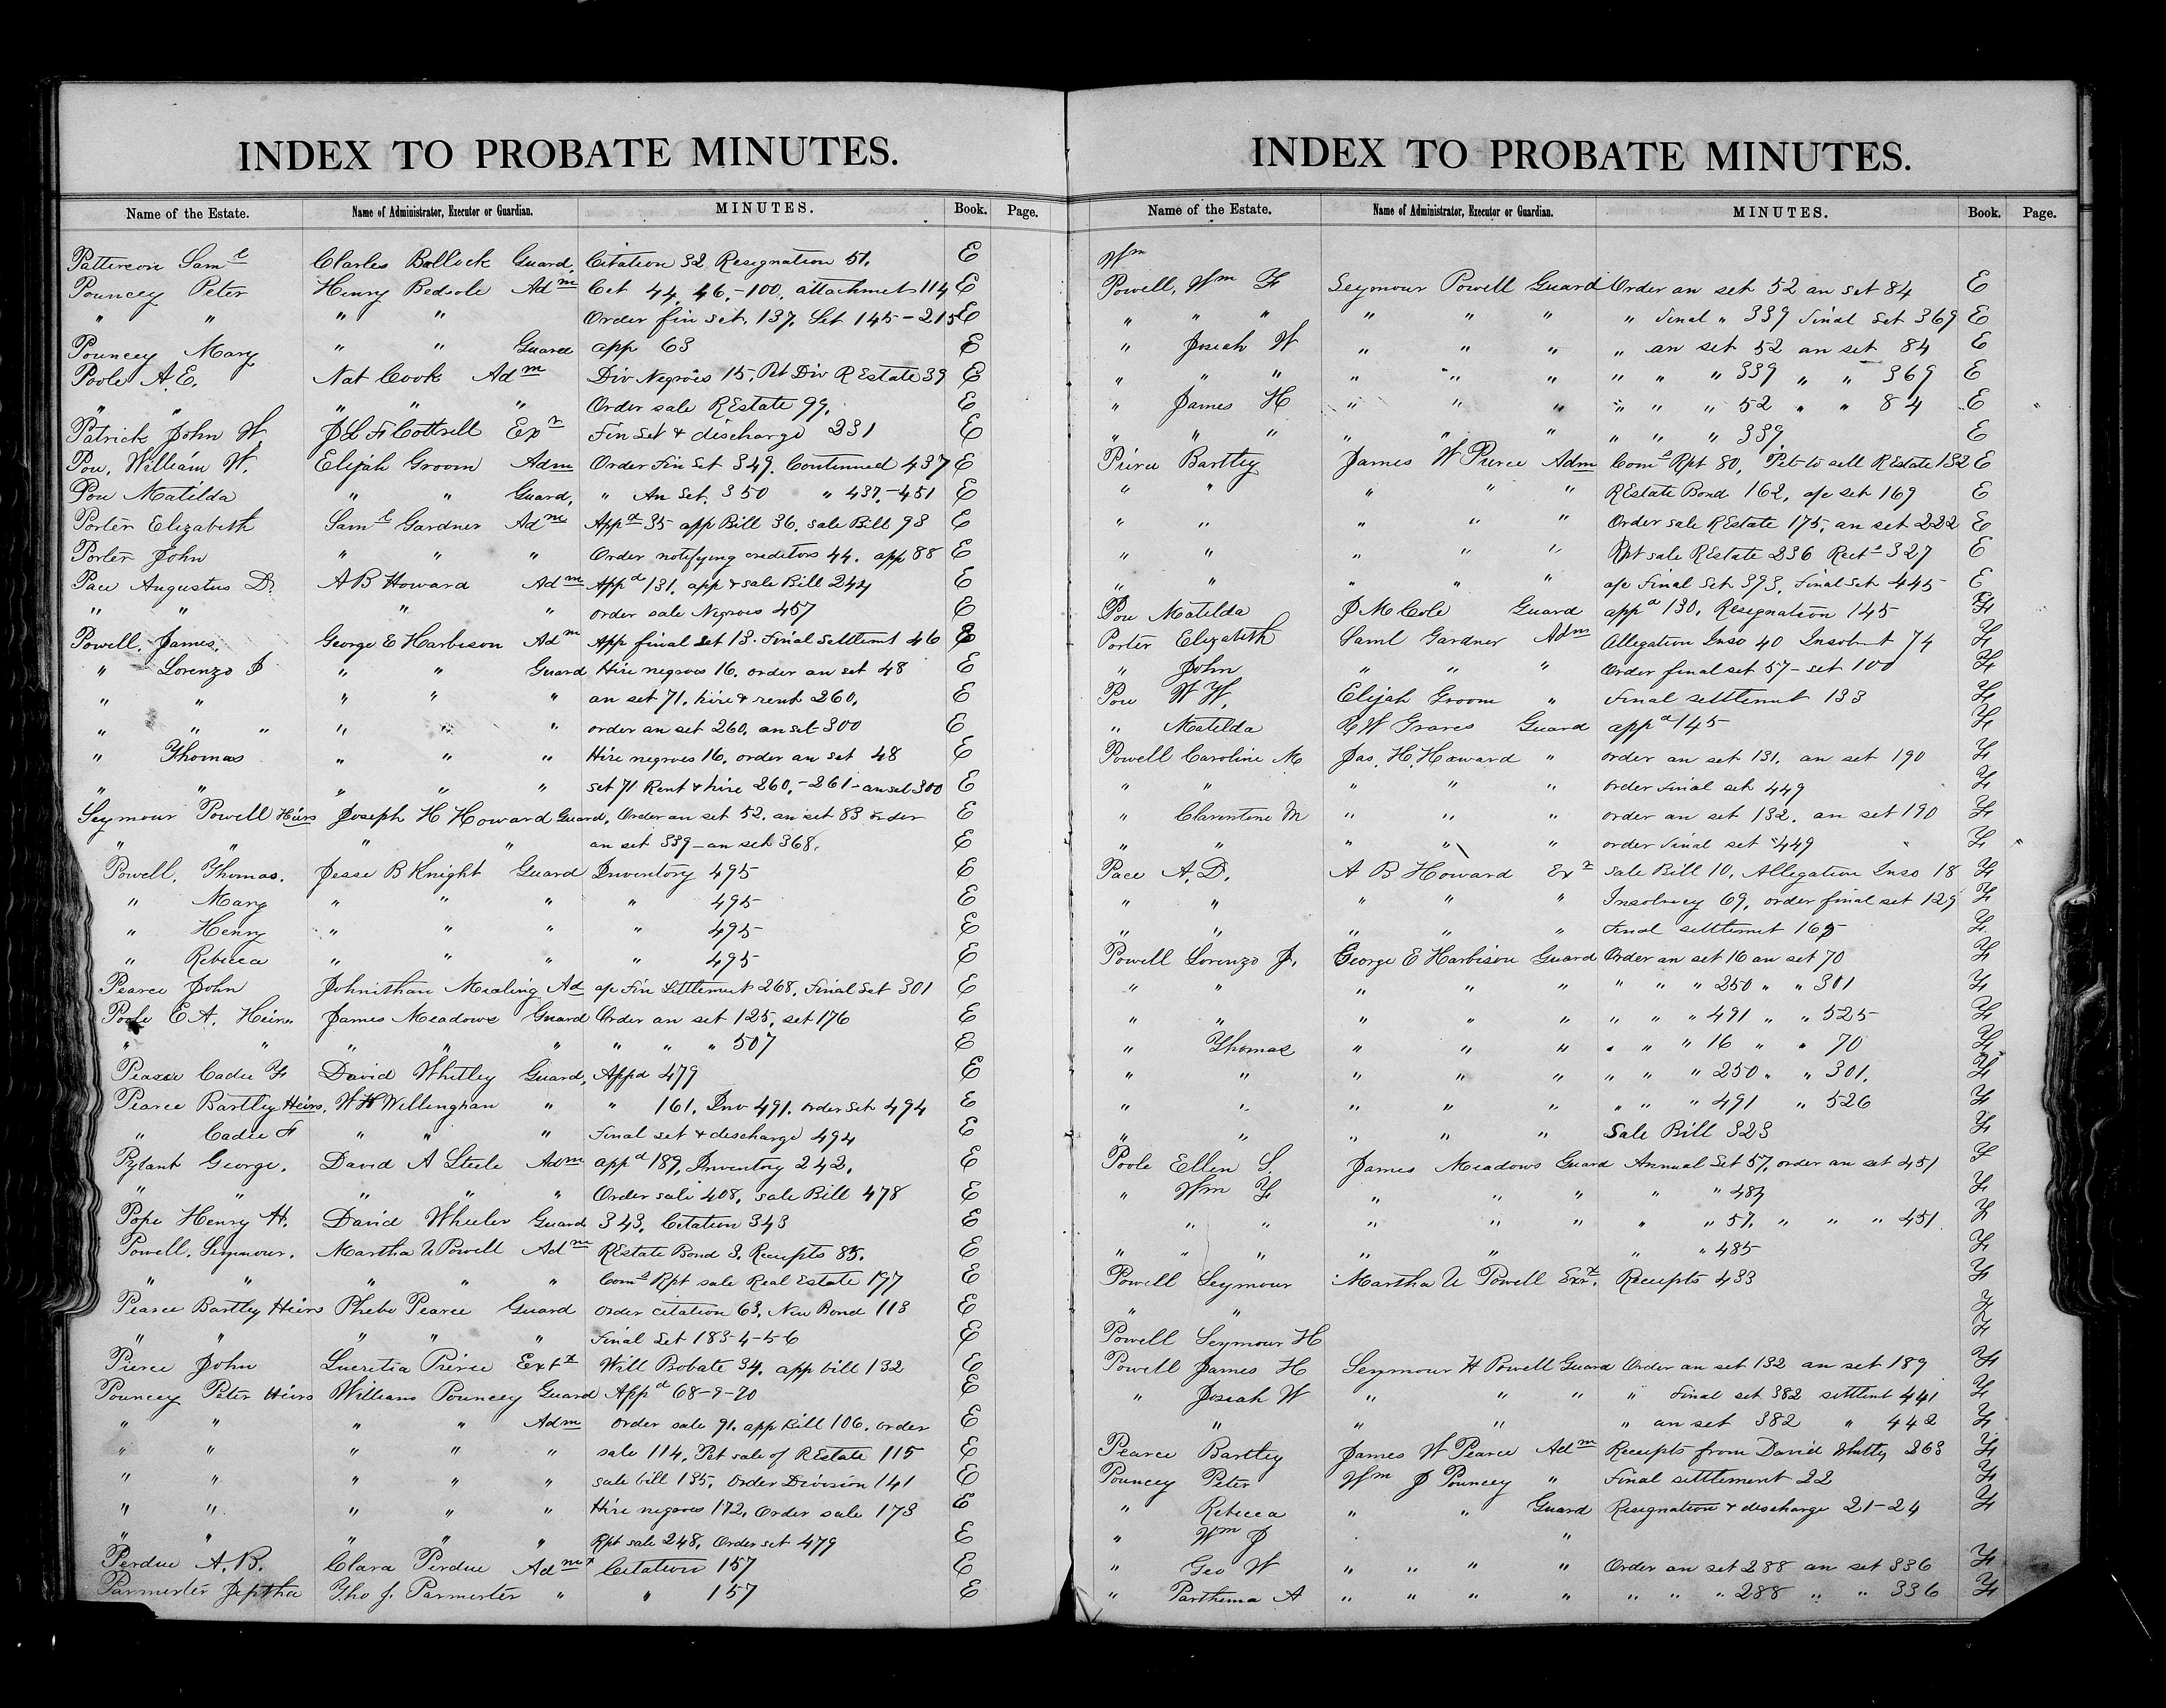 INDEX TO PROBATE MINUTES.
Name of the Estate. Name of Administrator, Executor or Guardian. MINUTES. Book. Page.
Patterson Saml Charles Bullock Guard, Citation 32 Resignation 51. E
Pouncey Peter Henry Bedsole Adm Cit 44, 46,-100, attachmet 114 E
" " " " Order fin set, 137, Set 145-215 E
Pouncey Mary " " Guard app 63 E
Poole A. E. Nat Cook Adm Div Negroes 15, Pet Div R Estate 39 E
" " " " " Order sale R Estate 99, E
Patrick John W, J L F Cottrell Exr Fin Set & discharge 231 E
Pou, William W. Elijah Groom Adm Order Fin Set 349, Continued 437 E
Pou Matilda " " Guard, " An Set, 350 " 437,-451 E
Porter Elizabeth Saml Gardner Adm Appd 35 app Bill 36, sale Bill 98 E
Porter John " " " Order notifying creditors 44. app 88 E
Pace Augustus D. A B Howard Adm Appd 131, app & sale Bill 244 E
" " " " order sale Negroes 457 E
Powell, James, George E Harbison Adm App final set 13. Final settlemt 46 E
" Lorenzo J " " Guard Hire negroes 16. order an set 48 E
" " " " " an set 71, hire & rent 260, E
" " " " " " order an set 260, an set 300 E
" Thomas " " " Hire negroes 16, order an set 48 E
" " " " " set 71 Rent & hire 260,-261-an set 300 E
Seymour Powell Heirs Joseph H Howard Guard, Order an set 52. an set 83 order E
" " " " an set 339-an set 368. E
Powell, Thomas. Jesse B Knight Guard Inventory 495 E
" Mary " " " " 495 E
" Henry " " " " 495 E
" Rebecca " " " " 495 E
Pearce John Johnithan Mealing Ad a/c Fin Settlement 268, Final Set 301 E
Poole E A, Heirs James Meadows Guard Order an set 125, set 176 E
" " " " " " " " 507 E
Pearce Cadee F David Whitley Guard, Appd 479 E
Pearce Bartley Heirs, W H Willinghan " " 161, Inv 491, order set 494 E
" Cadee F " " " Final set & discharge 494 E
Pylant George. David A Steele Adm appd 189, Inventory 242, E
" " " " " Order sale 408, sale Bill 478 E
Pope Henry A. David Wheeler Guard 343, Citation 343 E
Powell, Seymour. Martha U Powell Adm R Estate Bond 3, Receipts 85. E
" " " " " Coms Rpt sale Real Estate 197 E
Pearce Bartley Heirs Phebe Pearce Guard order citation 63, New Bond 113 E
" " " " " Final Set 183-4-5-6 E
Pierce John Lucretia Peirce Extx Will Bobate 34, app bill 132 E
Pouncey Peter Heirs William Pouncey Guard Appd 68-9-70 E
" " " " Adm order sale 91, app bill 106, order E
" " " " " sale 114, Pet sale of R Estate 115 E
" " " " " sale bill 135, Order Division 141 E
" " " " " Hire negroes 172, Order sale 173 E
" " " " " Rpt sale 248, Order set 479 E
Perdue A. B. Clara Perdue Admx Citation 157 E
Parmerter Jeptha Tho J. Parmerter " " 157 E
INDEX TO PROBATE MINUTES.
Name of the Estate. Name of Administrator, Executor or Guardian. MINUTES. Book. Page.
Wm
Powell, Wm F Seymour Powell Guard Order an set 52 an set 84 E
" " " " " " " Final " 339 Final Set 369 E
" Josiah W " " " " an set 52 an set 84 E
" " " " " " " " " 339 " " 369 E
" James H " " " " " " 52 " " 84 E
" " " " " " " " " 339 E
Pierce Bartley James W Pierce Adm Coms Rpt 80, Pet to sell R Estate 132 E
" " " " " R Estate Bond 162, a/c set 169 E
" " " " " Order sale R Estate 175, an set 222 E
" " " " " Rpt sale R Estate 236 Rects 327 E
" " " " " a/c Final Set 393, Final Set 445 E
Pou Matilda J M Cole Guard appd 130, Resignation 145 F
Porter Elizabeth Saml Gardner Adm Allegation Inso 40 Insolvent 74 F
" John " " " Order final set 57-set 100 F
Pou W W, Elijah Groom " Final settlemnt 133 F
" Matilda R W Graves Guard appd 145 F
Powell Caroline M Jas, H, Howard " order an set 131, an set 190 F
" " " " " order Final set 449 F
" Clarentine M " " " order an set 132, an set 190 F
" " " " " order Final set 449 F
Pace A, D, A B Howard Exr sale Bill 10, Allegation Inso 18 F
" " " " " Insolvency 69, order final set 129 F
" " " " " Final settlemnt 165 F
Powell Lorenzo J, George E Harbison Guard Order an set 16 an set 70 F
" " " " " " " " 250 " " 301 F
" " " " " " " " 491 " " 525 F
" Thomas " " " " " " 16 " " 70 F
" " " " " " " " 250 " " 301, F
" " " " " " " " 491 " 526 F
" " " " " Sale Bill 323 F
Poole Ellen S. James Meadows Guard Annual Set 57, order an set 451 F
" Wm F " " " " " 484 F
" " " " " " " 57, " " " 451 F
" " " " " " " 485 F
Powell Seymour Martha U Powell Exrx. Receipts 433 F
" " F
Powell Seymour H F
Powell James H Seymour H Powell Guard Order an set 132 an set 189 F
" Josiah W " " " " Final set 382 settlmt 441 F
" " " " an set 382 " 442 F
Pearce Bartley James W Pearce Adm Receipts from David Whitley 263 F
Pouncey Peter Wm J Pouncey " Final settlement 22 F
" Rebecca " " Guard Resignation & discharge 21-24 F
" Wm J "
" Geo W " " " " Order an set 288 an set 336 F
" Parthema A " " " " " " " 288 " " 336 F